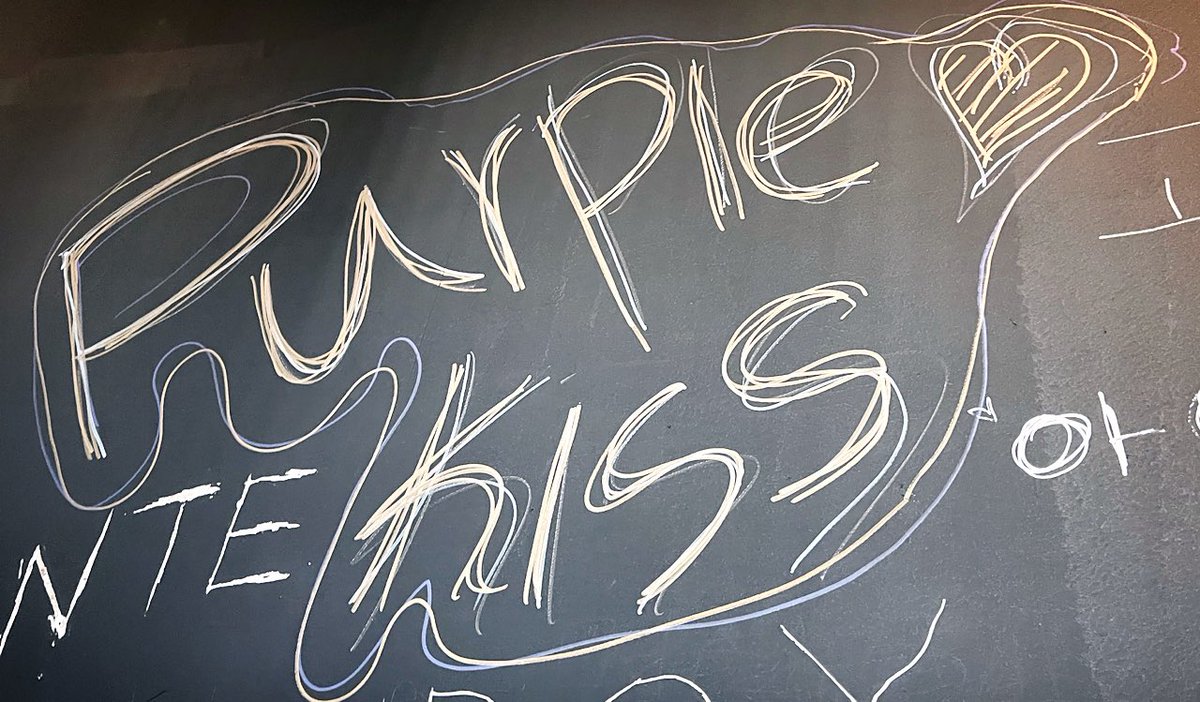 Purple
Kiss
NTE